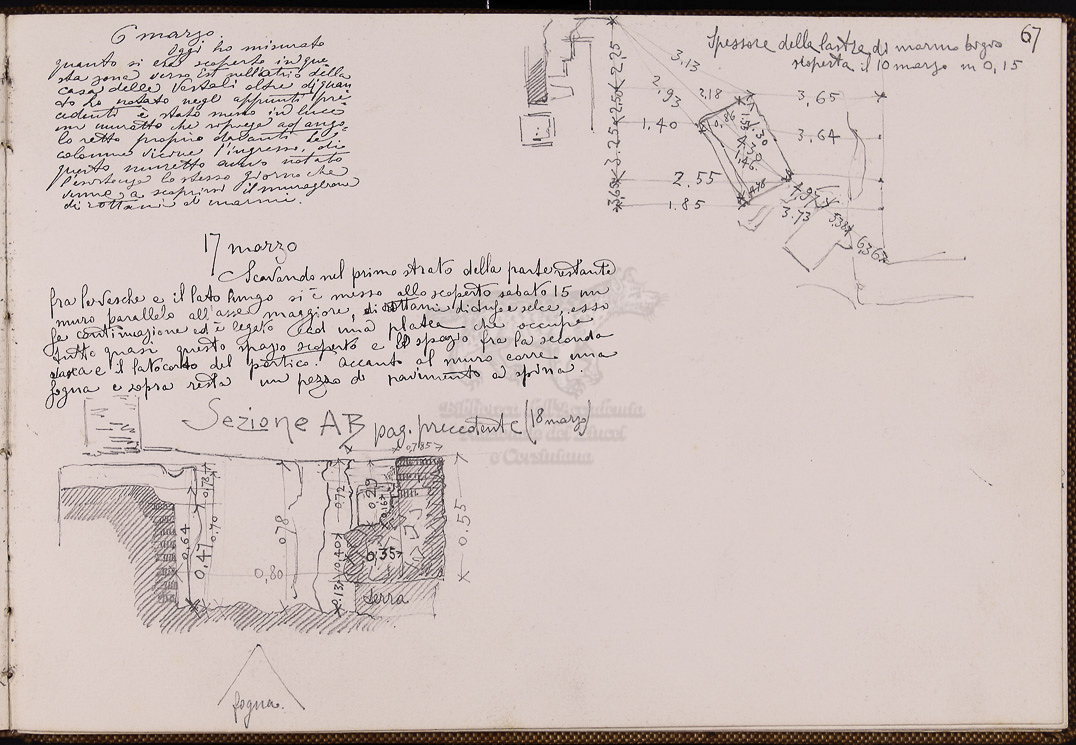 67
6 marzo.
Oggi ho misurato
quanto si era scoperto in que
sta zona verso est nell'atrio della
casa delle Vestali oltre di quan
to ho notato negli appunti pre
cedenti è stato messo in luce
un muretto che ripiega ad ango
lo retto proprio davanti le
colonne vicine l'ingresso, di
questo muretto avevo notato
l'esistenza lo stesso giorno che
venne a scoprirsi il muraglione
di rottami di marmi.
17 marzo
Scavando nel primo strato della parte restante
fra le vasche e il lato lungo si è messo allo scoperto sabato 15 un
muro parallelo all'asse maggiore, di rottami di tufo e selce, esso
fa continuazione ed è legato ad una platea che occupa
tutto quasi questo spazio scoperto e lo spazio fra la seconda
vasca e il lato corto del portico. Accanto al muro corre una
fogna e sopra resta un pezzo di pavimento a spina.
Sezione AB pag. precedente (18 marzo)
0,785
0,78
0,64
0,47
0,90
0,78
0,80
0,72
0,40
0,13
0,29
0,16
0,35
0,55
Terra
fogna.
Spessore della lastra di marmo bigio
scoperta il 10 marzo m 0,15
2,25
3,13
2,93
2,18
3,65
1,40
3,64
3,25
2,55
1.85
0,86
1,30
4,30
1,46
3.73
538
636
Biblioteca dell'Accademia
Nazionale dei Lincei
e Corsiniana